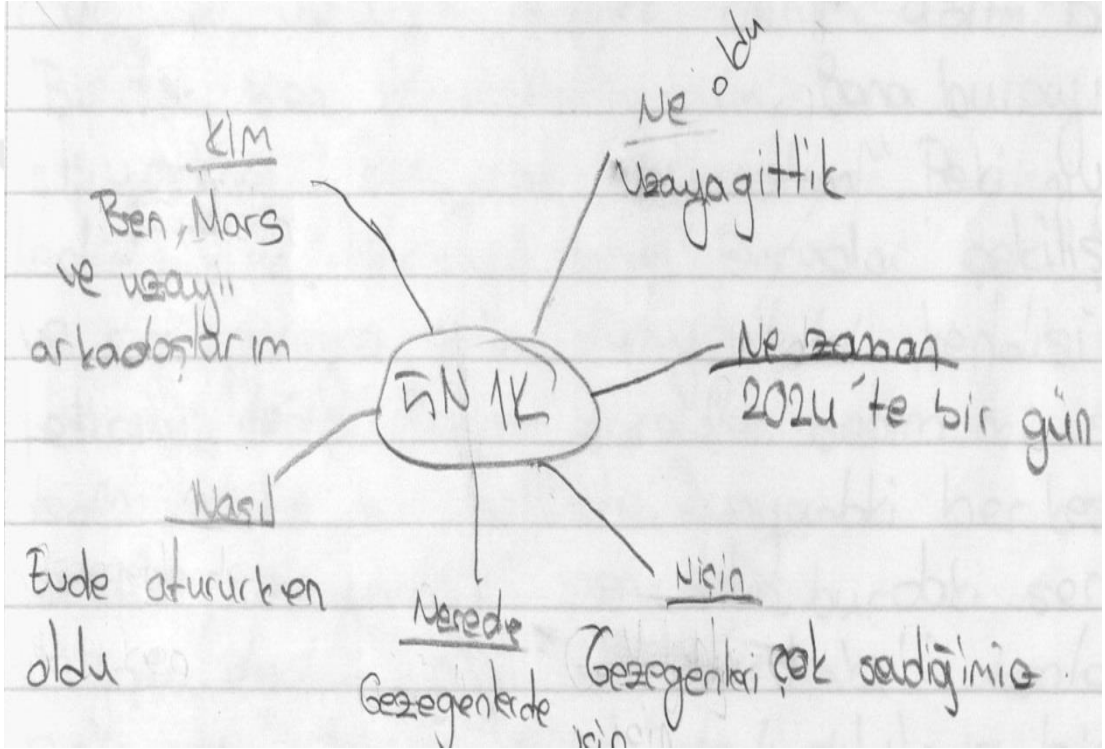 Kim
Ben, Mars
ve uzaylı
arkadaşlarım
Ne oldu
Uzaya gittik
5N 1K
Ne zaman
2024'te bir gün
Nasıl
Evde otururken
oldu
Nerede
Gezegenlerde
Niçin
Gezegenleri çok sevdiğimiz
için